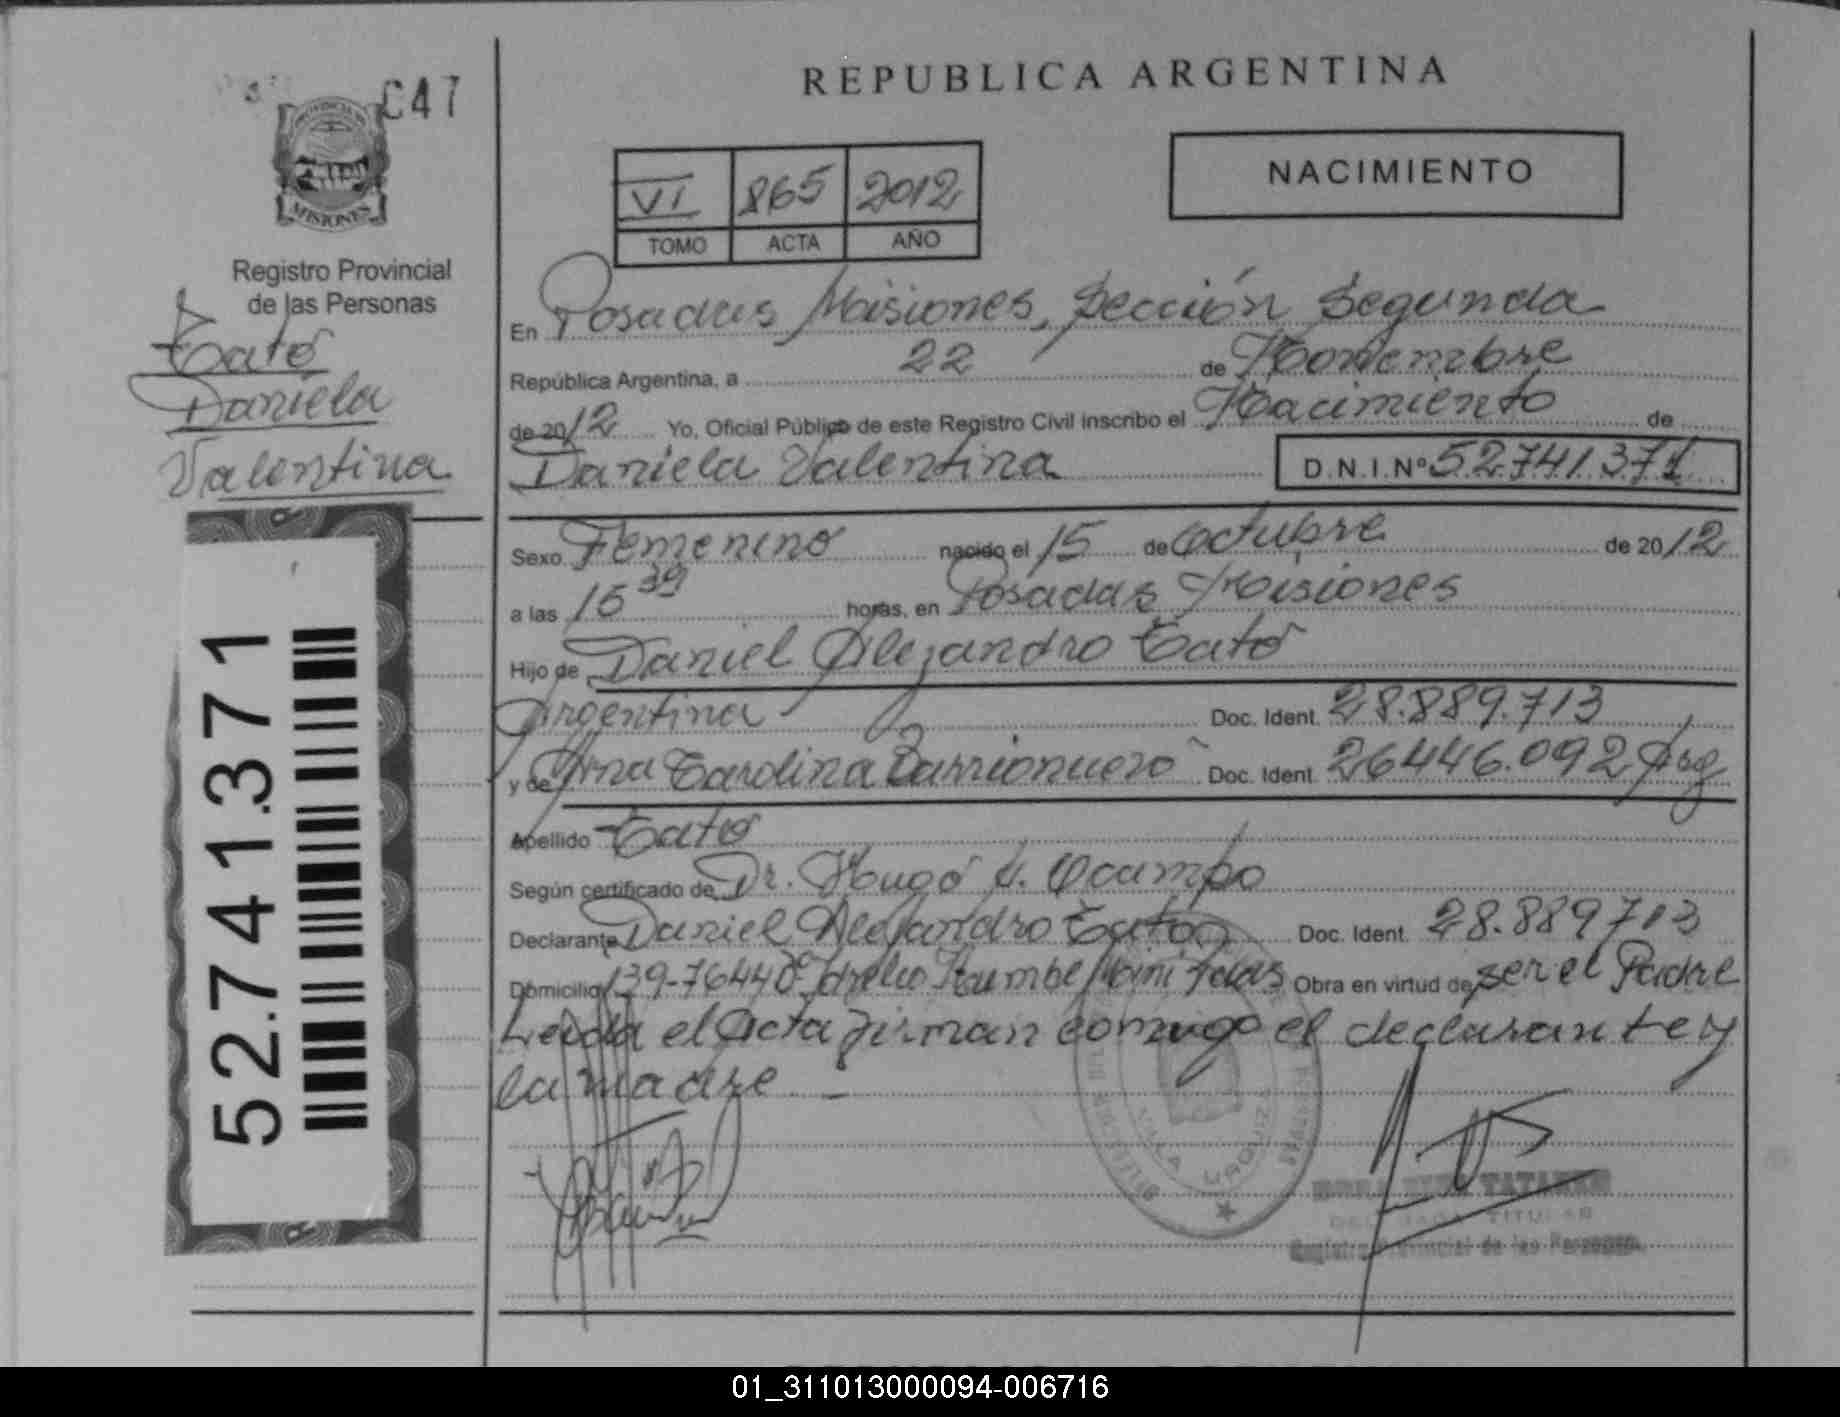 C47
PROVINCIA DE
MISIONES
Registro Provincial
de las Personas
Tató
Daniela
Valentina
52.741.371
REPUBLICA ARGENTINA
VI 865 2012
TOMO ACTA AÑO
NACIMIENTO
En Posadas Misiones, Sección Segunda
República Argentina, a 22 de Noviembre
de 2012 Yo, Oficial Público de este Registro Civil inscribo el Nacimiento de
Daniela Valentina D.N.I.Nº 52.741.371
Sexo Femenino nacido el 15 de Octubre de 2012
a las 15 39 horas, en Posadas Misiones
Hijo de Daniel Alejandro Tató
Argentina Doc. Ident. 28.889.713
y de Ana Carolina Barrionuevo Doc. Ident. 26446.092 Arg
Apellido Tató
Según certificado de Dr. Hugo Ocampo
Declarante Daniel Alejandro Tató Doc. Ident. 28.889713
Domicilio 139-7644 Obra en virtud de ser el Padre
Leida el Acta firman conmigo el declarante y
la madre
VILLA URQUIZA
TITULAR
Registro Provincial de las Personas
01_311013000094-006716